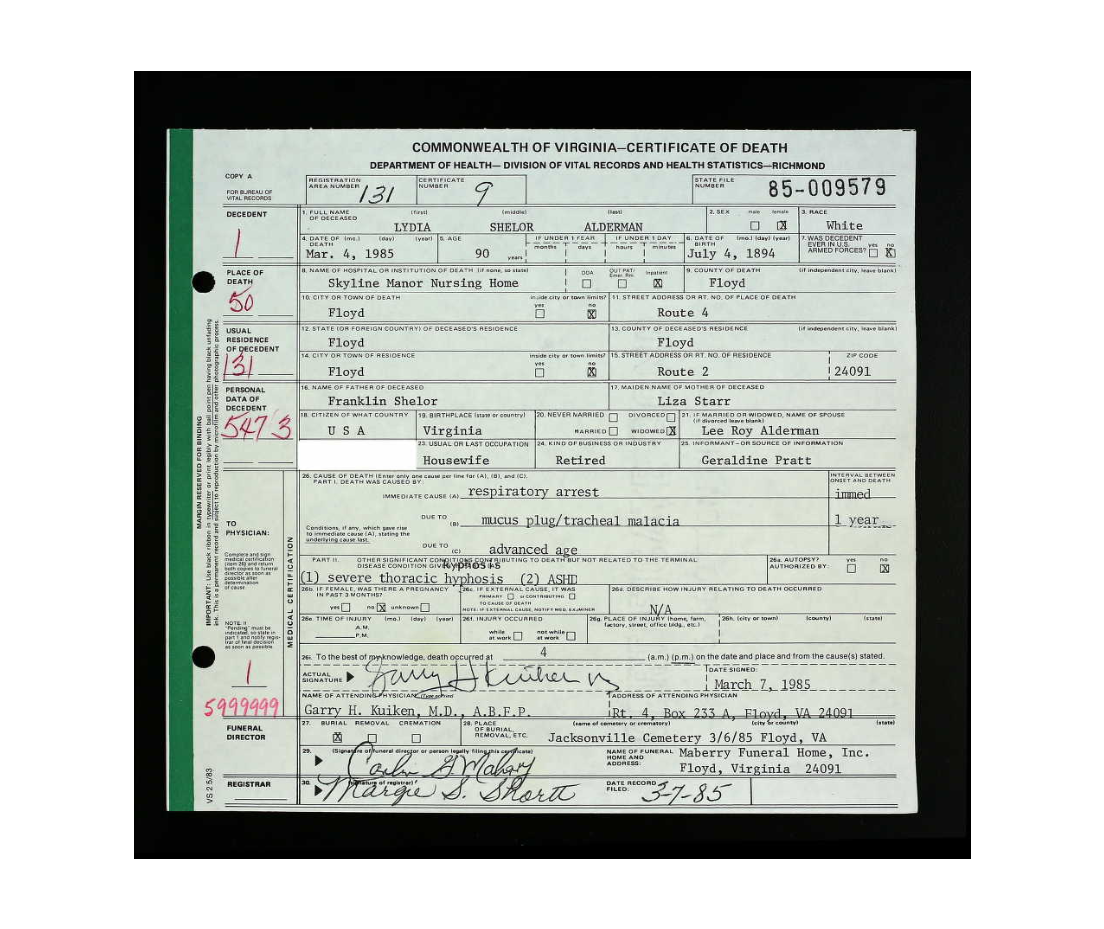 COMMONWEALTH OF VIRGINIA—CERTIFICATE OF DEATH
DEPARTMENT OF HEALTH— DIVISION OF VITAL RECORDS AND HEALTH STATISTICS—RICHMOND
COPY A
FOR BUREAU OF VITAL RECORDS
REGISTRATION AREA NUMBER 131 CERTIFICATE NUMBER 9 STATE FILE NUMBER 85-009579
DECEDENT 1
1. FULL NAME OF DECEASED (first) (middle) (last) 2. SEX male female 3. RACE
LYDIA SHELOR ALDERMAN X White
4. DATE OF DEATH (mo.) (day) (year) 5. AGE IF UNDER 1 YEAR months days IF UNDER 1 DAY hours minutes 6. DATE OF BIRTH (mo.) (day) (year) 7. WAS DECEDENT EVER IN U.S. ARMED FORCES? yes no
Mar. 4, 1985 90 years July 4, 1894 X
PLACE OF DEATH 50
8. NAME OF HOSPITAL OR INSTITUTION OF DEATH (if none, so state) DOA OUT PAT/ Emer. Rm Inpatient 9. COUNTY OF DEATH (if independent city, leave blank)
Skyline Manor Nursing Home X Floyd
10. CITY OR TOWN OF DEATH inside city or town limits? yes no 11. STREET ADDRESS OR RT. NO. OF PLACE OF DEATH
Floyd X Route 4
USUAL RESIDENCE OF DECEDENT 131
12. STATE (OR FOREIGN COUNTRY) OF DECEASED'S RESIDENCE 13. COUNTY OF DECEASED'S RESIDENCE (if independent city, leave blank)
Floyd Floyd
14. CITY OR TOWN OF RESIDENCE inside city or town limits? yes no 15. STREET ADDRESS OR RT. NO. OF RESIDENCE ZIP CODE
Floyd X Route 2 24091
PERSONAL DATA OF DECEDENT 547 3
16. NAME OF FATHER OF DECEASED 17. MAIDEN NAME OF MOTHER OF DECEASED
Franklin Shelor Liza Starr
18. CITIZEN OF WHAT COUNTRY 19. BIRTHPLACE (state or country) 20. NEVER MARRIED DIVORCED MARRIED WIDOWED X 21. IF MARRIED OR WIDOWED, NAME OF SPOUSE (if divorced leave blank)
U S A Virginia Lee Roy Alderman
23. USUAL OR LAST OCCUPATION 24. KIND OF BUSINESS OR INDUSTRY 25. INFORMANT - OR SOURCE OF INFORMATION
Housewife Retired Geraldine Pratt
26. CAUSE OF DEATH (Enter only one cause per line for (A), (B), and (C). INTERVAL BETWEEN ONSET AND DEATH
PART I. DEATH WAS CAUSED BY:
IMMEDIATE CAUSE (A) respiratory arrest immed
DUE TO (B) mucus plug/tracheal malacia 1 year
Conditions, if any, which gave rise to immediate cause (A), stating the underlying cause last.
DUE TO (C) advanced age
PART II. OTHER SIGNIFICANT CONDITIONS CONTRIBUTING TO DEATH BUT NOT RELATED TO THE TERMINAL DISEASE CONDITION 26a. AUTOPSY? AUTHORIZED BY: yes no X
Kyphosis
(1) severe thoracic hyphosis (2) ASHD
26b. IF FEMALE, WAS THERE A PREGNANCY IN PAST 3 MONTHS? yes no X unknown
26c. IF EXTERNAL CAUSE, IT WAS PRIMARY or CONTRIBUTING TO CAUSE OF DEATH
NOTE: IF EXTERNAL CAUSE, NOTIFY MED. EXAMINER
26d. DESCRIBE HOW INJURY RELATING TO DEATH OCCURRED
N/A
26e. TIME OF INJURY (mo.) (day) (year) A.M. P.M. 26f. INJURY OCCURRED while at work not while at work 26g. PLACE OF INJURY (home, farm, factory, street, office bldg., etc.) 26h. (city or town) (county) (state)
26i. To the best of my knowledge, death occurred at 4 (a.m.) (p.m.) on the date and place and from the cause(s) stated.
ACTUAL SIGNATURE Garry H Kuiken DATE SIGNED: March 7, 1985
NAME OF ATTENDING PHYSICIAN (Type or Print) ADDRESS OF ATTENDING PHYSICIAN
Garry H. Kuiken, M.D., A.B.F.P. Rt. 4, Box 233 A, Floyd, VA 24091
TO PHYSICIAN:
Complete and sign medical certification (item 26) and return both copies to funeral director as soon as possible after determination of cause
NOTE: If "Pending" must be indicated, so state in part 1 and notify registrar of final decision as soon as possible.
1
5999999
MEDICAL CERTIFICATION
FUNERAL DIRECTOR
27. BURIAL REMOVAL CREMATION X 28. PLACE OF BURIAL, REMOVAL, ETC. (name of cemetery or crematory) (city or county) (state)
Jacksonville Cemetery 3/6/85 Floyd, VA
29. (Signature of funeral director or person legally filing this certificate) NAME OF FUNERAL HOME AND ADDRESS: Maberry Funeral Home, Inc.
Floyd, Virginia 24091
REGISTRAR
30. (signature of registrar) Margie S. Shortt DATE RECORD FILED: 3-7-85
MARGIN RESERVED FOR BINDING
VS 2 5/83